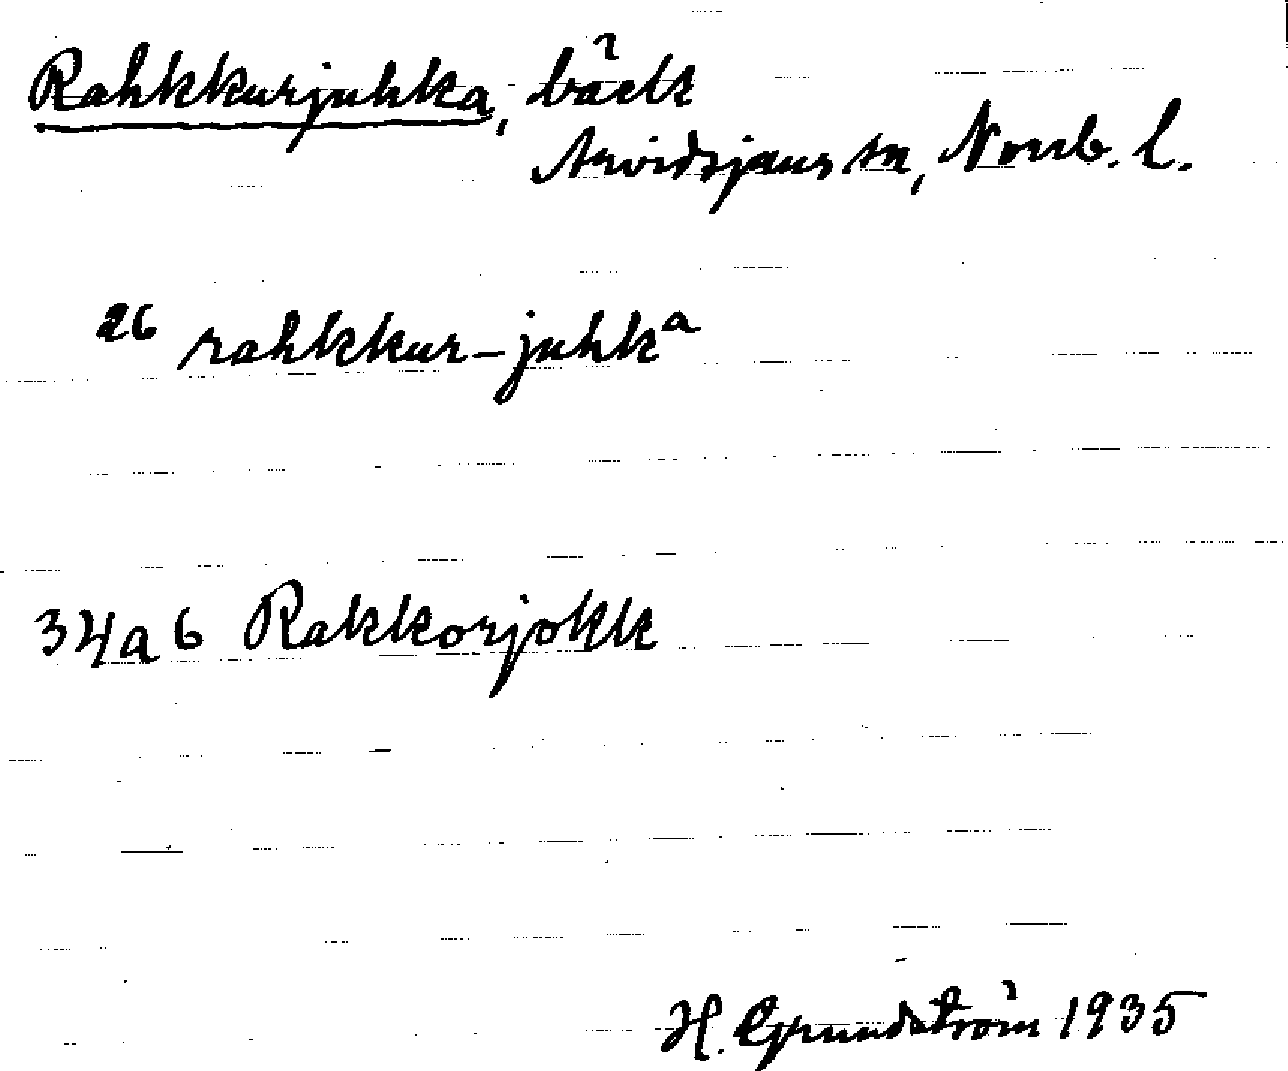 Rahkkurjuhka, bäck
Arvidsjaurs sn, Norrb. l.
26 rahkkur-juhkᵃ
34a6 Rakkorjokk
H. Grundström 1935